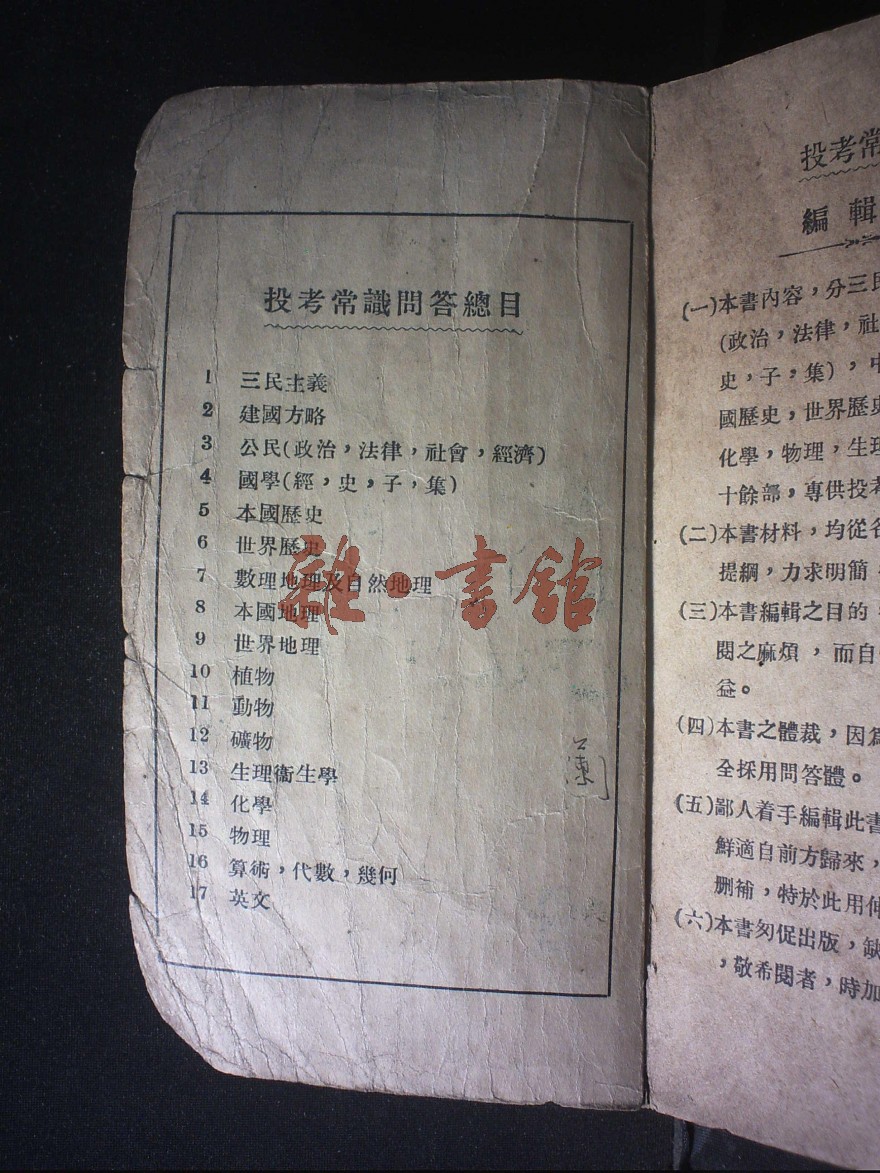 投考常識問答總目
1 三民主義
2 建國方略
3 公民(政治，法律，社會，經濟)
4 國學(經，史，子，集)
5 本國歷史
6 世界歷史
7 數理地理及自然地理
8 本國地理
9 世界地理
10 植物
11 動物
12 礦物
13 生理衞生學
14 化學
15 物理
16 算術，代數，幾何
17 英文
雜·書館
投考常
編輯
(一)本書內容，分三民
(政治，法律，社
史，子，集)，中
國歷史，世界歷史
化學，物理，生理
十餘部，專供投考
(二)本書材料，均從各
提綱，力求明簡
(三)本書編輯之目的
閱之麻煩，而自
益。
(四)本書之體裁，因爲
全採用問答體。
(五)鄙人着手編輯此書
鮮適自前方歸來，
删補，特於此用伸
(六)本書匆促出版，缺
，敬希閱者，時加